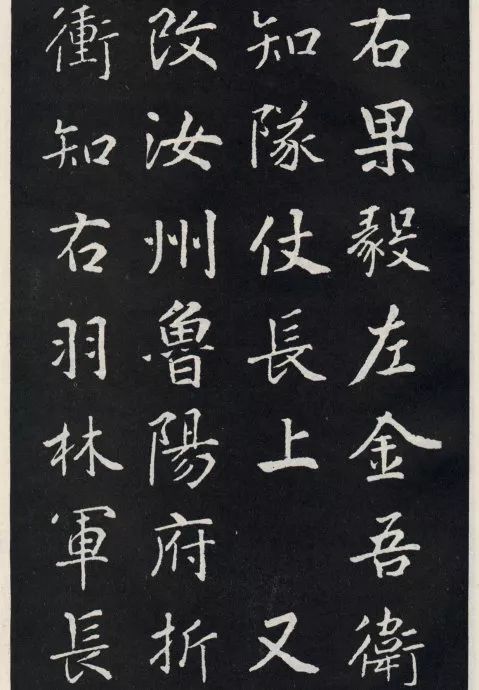 右果毅左金吾衛
知隊仗長上又
改汝州魯陽府折
衝知右羽林軍長